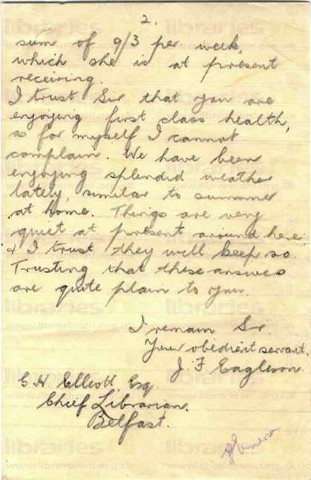 2.
sum of 9/3 per week,
which she is at present
receiving.
I trust Sir that you are
enjoying first class health,
as for myself I cannot
complain. We have been
enjoying splendid weather
lately, similar to summer
at home. Things are very
quiet at present around here
& I trust they will keep so.
Trusting that these answers
are quite plain to you.
I remain Sir.
Your obedient servant.
J. F Eagleson.
G. H. Elliott. Esq
Chief Librarian.
Belfast.